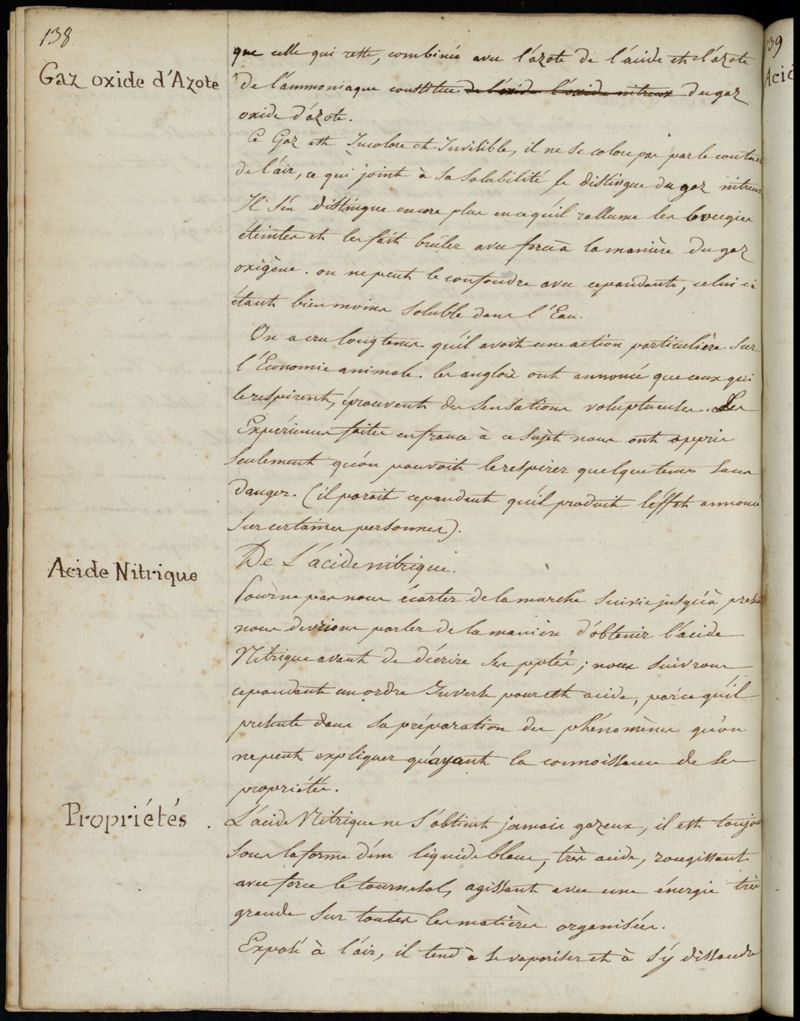 138
Gaz oxide d'Azote
que celle qui reste, combinée avec l'azote de l'acide et l'azote
de l'ammoniaque constitue de l'oxide l'acide nitreux du gaz
oxide d'azote.
Ce Gaz est Incolore et Invisible, il ne se colore pas par le contact
de l'air, ce qui joint à sa solubilité, le distingue du gaz nitreux
Il s'en distingue encore plus en ce qu'il rallume les bougies
éteintes et les fait brûler avec force à la manière du gaz
oxigène. on ne peut le confondre avec cependant, celui ci
étant bien moins soluble dans l'Eau.
On a cru longtems qu'il avoit une action particulière sur
l'Economie animale. les anglois ont annoncé que ceux qui
le respirent, éprouvent des sensations voluptueuses. Les
Expériences faites en france à ce sujet nous ont appris
seulement qu'on pouvoit le respirer quelque tems sans
danger. (il paroit cependant qu'il produit l'effet annoncé
sur certaines personnes).
Acide Nitrique
De L'acide nitrique.
Pour ne pas nous écarter de la marche suivie jusqu'à présent
nous devrions parler de la manière d'obtenir l'acide
Nitrique avant de décrire ses pptés; nous suivrons
cependant un ordre Inverse pour cet acide, parce qu'il
présente dans sa préparation des phénomènes qu'on
ne peut expliquer qu'ayant la connoissance de ses
propriétés.
Propriétés.
L'acide Nitrique ne s'obtient jamais gazeux, il est toujours
sous la forme d'un liquide blanc, très acide, rougissant
avec force le tournesol, agissant avec une énergie très
grande sur toutes les matières organisées.
Exposé à l'air, il tend à se vaporiser et à s'y dissoudre
139
Acid